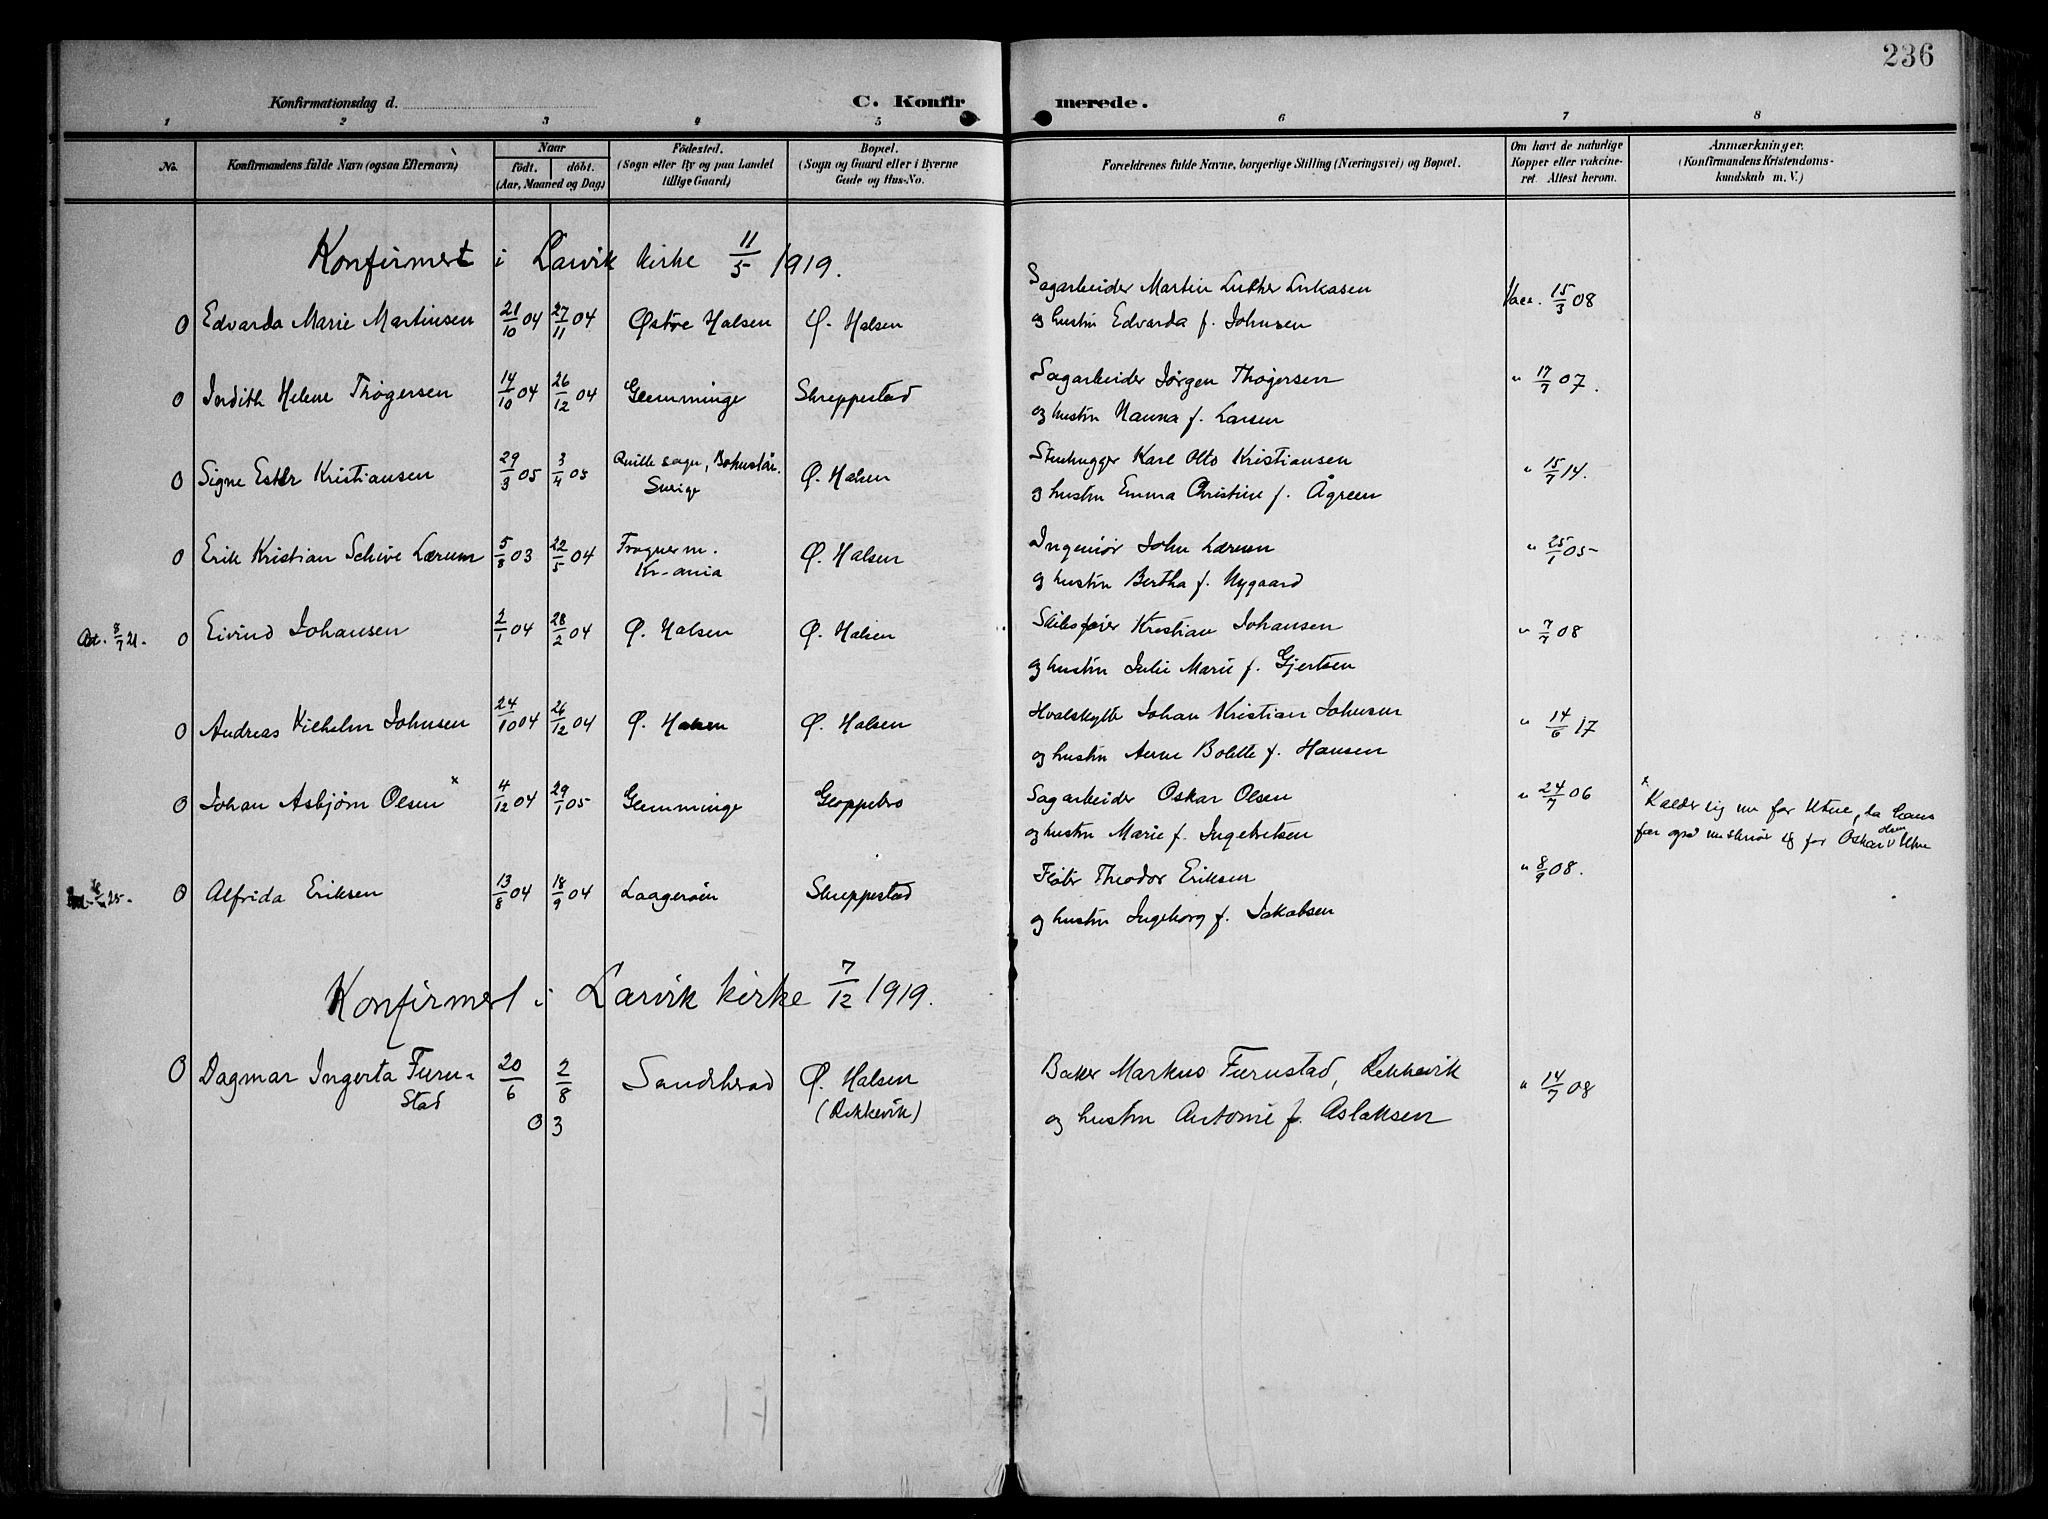 236
Konfirmationsdag d.
C. Konfirmerede.
1 2 3 4 5 6 7 8
No.
Konfirmandens fulde Navn (ogsaa Efternavn)
Naar
födt. döbt.
(Aar, Maaned og Dag)
Födested.
(Sogn eller By og paa Landet
tillige Gaard)
Bopæl.
(Sogn og Gaard eller i Byerne
Gade og Hus-No.
Forældrenes fulde Navne, borgerlige Stilling (Næringsvei) og Bopæl.
Om havt de naturlige
Kopper eller vakcine-
ret. Attest herom.
Anmærkninger.
(Konfirmandens Kristendoms-
kundskab m. V.)
Konfirmert i Larvik kirke 11/5 1919.
O Edvarda Marie Martinsen 21/10 04 27/11 04 Østre Halsen Ø. Halsen Sagarbeider Martin Luther Lukasen Vacc. 15/3 08
og hustru Edvarda f. Johnsen
O Judith Helene Thøgersen 14/10 04 26/12 04 Glemminge Skreppestad Sagarbeider Jørgen Thøgersen " 17/7 07.
og hustru Nanna f. Larsen
O Signe Ester Kristiansen 29/3 05 3/4 05 Quille sogn, Bohuslän. Ø. Halsen Stenhugger Karl Otto Kristiansen " 15/7 14.
Sverige og hustru Emma Christine f. Ågreen
O Erik Kristian Schive Lærum 5/8 03 22/5 04 Frogner m. Ø. Halsen Ingeniør John Lærum " 25/1 05
Kr-ania og hustru Bertha f. Nygaard
Att. 8/7 21. O Eivind Johansen 2/1 04 28/2 04 Ø. Halsen Ø. Halsen Skibsfører Kristian Johansen " 7/7 08
og hustru Julie Marie f. Gjertsen
O Andreas Vilhelm Johnsen 24/10 04 26/12 04 Ø. Halsen Ø. Halsen Hvalskytte Johan Kristian Johnsen " 14/6 17
og hustru Anne Bolette f. Hansen
O Johan Asbjørn Olsen x 4/12 04 29/1 05 Glemminge Gloppebro Sagarbeider Oskar Olsen " 24/7 06 x Kalder sig nu for Utne, da hans
og hustru Marie f. Ingebretsen far også nu skriver sig for Oskar Olsen Utne
25. O Alfrida Eriksen 13/8 04 18/9 04 Laagerøen Skreppestad Fløter Theodor Eriksen " 8/9 08.
og hustru Ingeborg f. Jakobsen
Konfirmert i Larvik kirke 7/12 1919.
O Dagmar Ingerta Furu- 20/6 2/8 Sandeherad Ø. Halsen Baker Markus Furustad, Rekkevik " 14/7 08
stad 03 (Rekkevik) og hustru Antonie f. Aslaksen